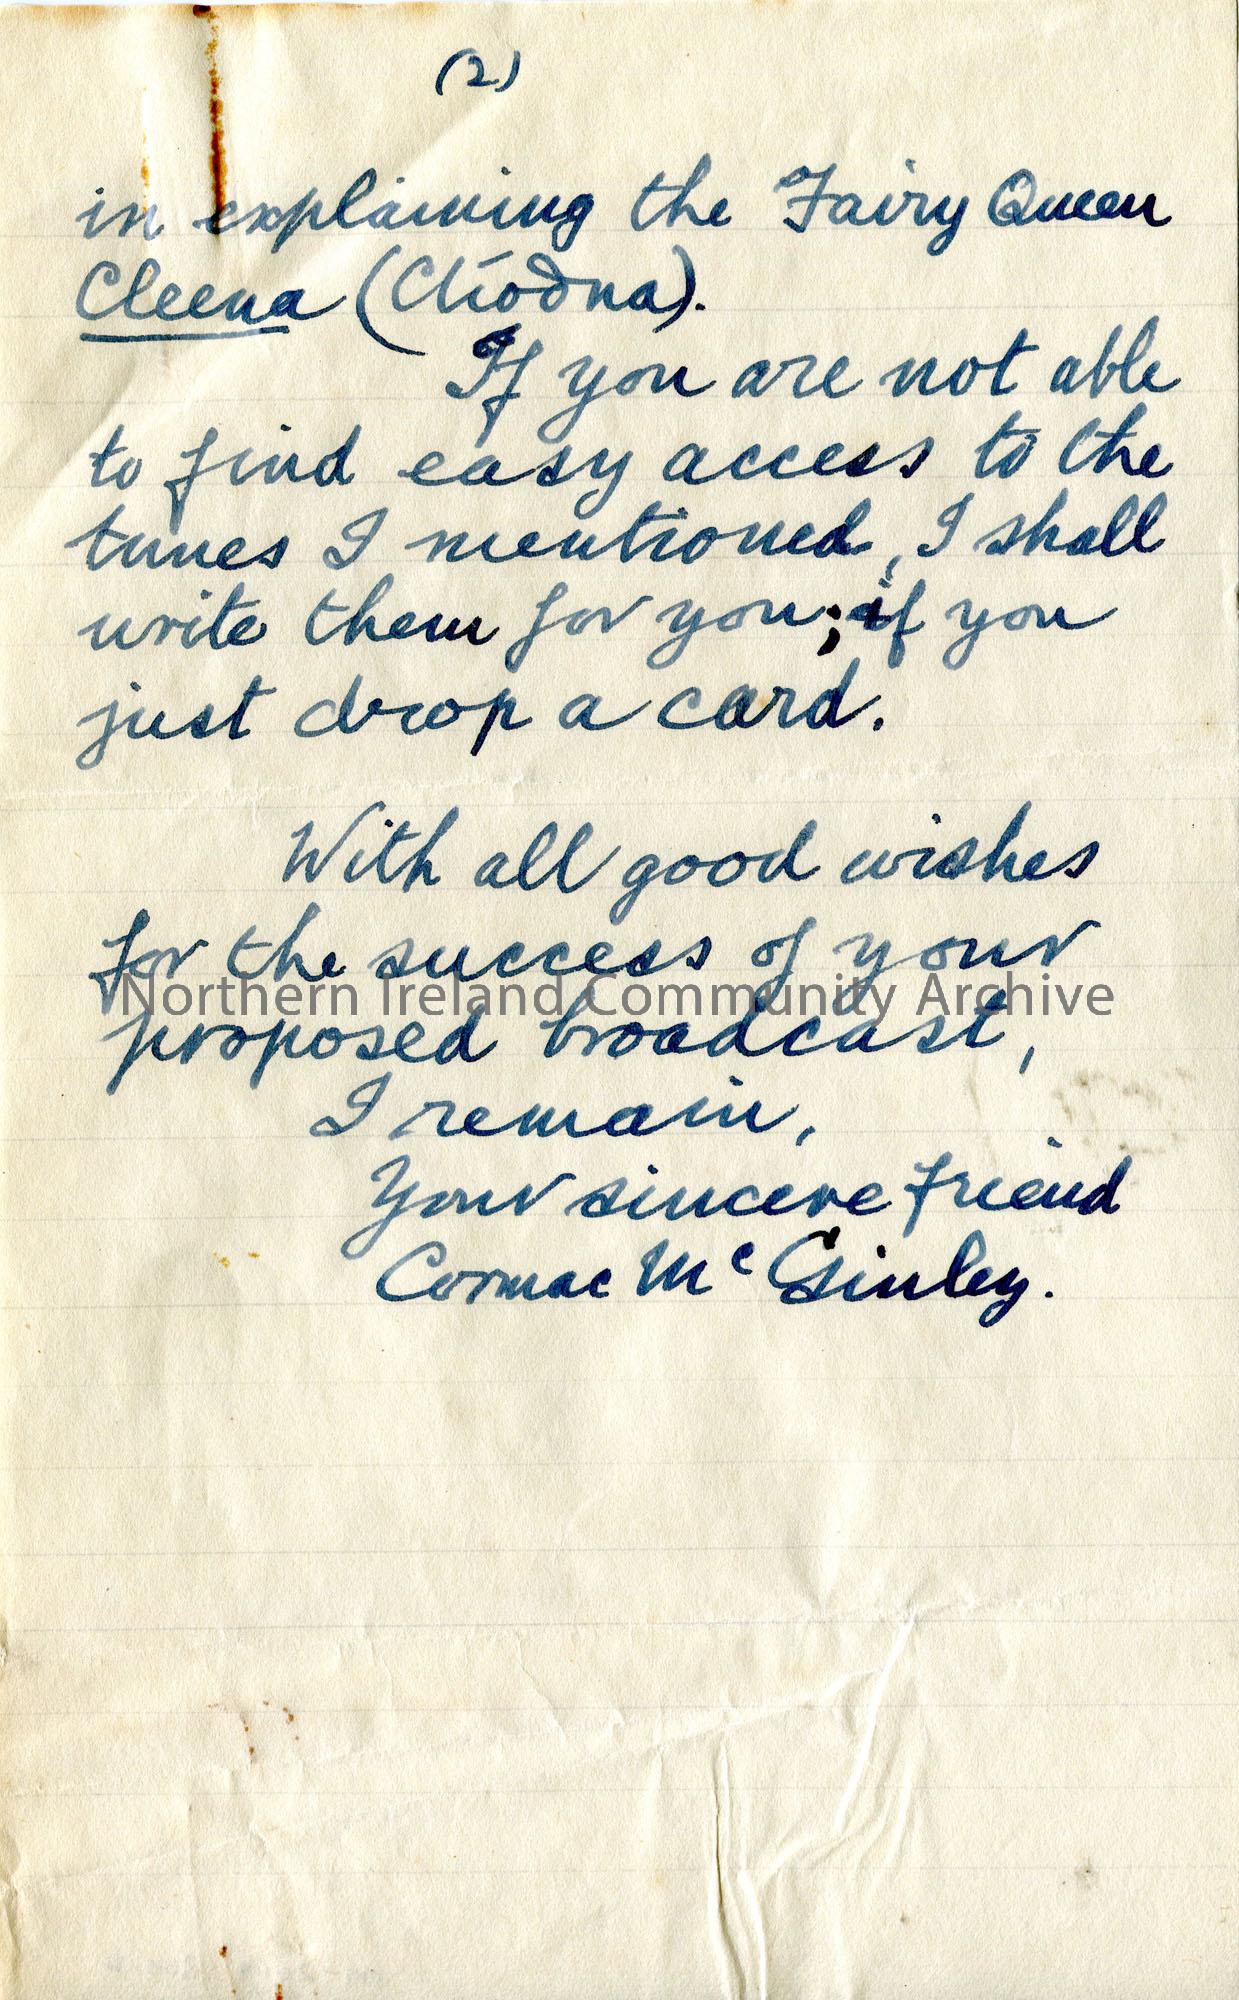 (2)
in explaining the Fairy Queen
Cleena (Clíoḋna).
If you are not able
to find easy access to the
tunes I mentioned, I shall
write them for you; if you
just drop a card.
With all good wishes
for the success of your
Northern Ireland Community Archive
proposed broadcast,
I remain,
Your sincere friend
Cormac Mc Ginley.